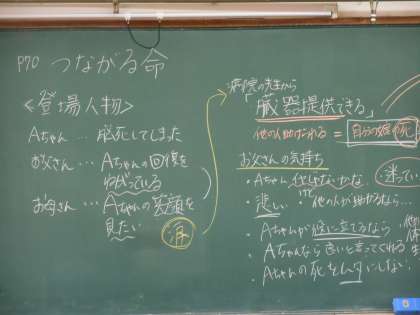 P70 つながる命
<登場人物>
Aちゃん … 脳死してしまった
お父さん … Aちゃんの回復を
ねがっている
お母さん … Aちゃんの笑顔を
見たい
病院の先生から
「臓器提供できる」
他の人助けられる = 自分の娘 死
お父さんの気持ち
・Aちゃん 治らないかな
迷ってい
・悲しい けど 他の人が助かるなら…
・Aちゃんが役に立てるなら
・Aちゃんなら良いと言ってくれる
・Aちゃんの死をムダにしない